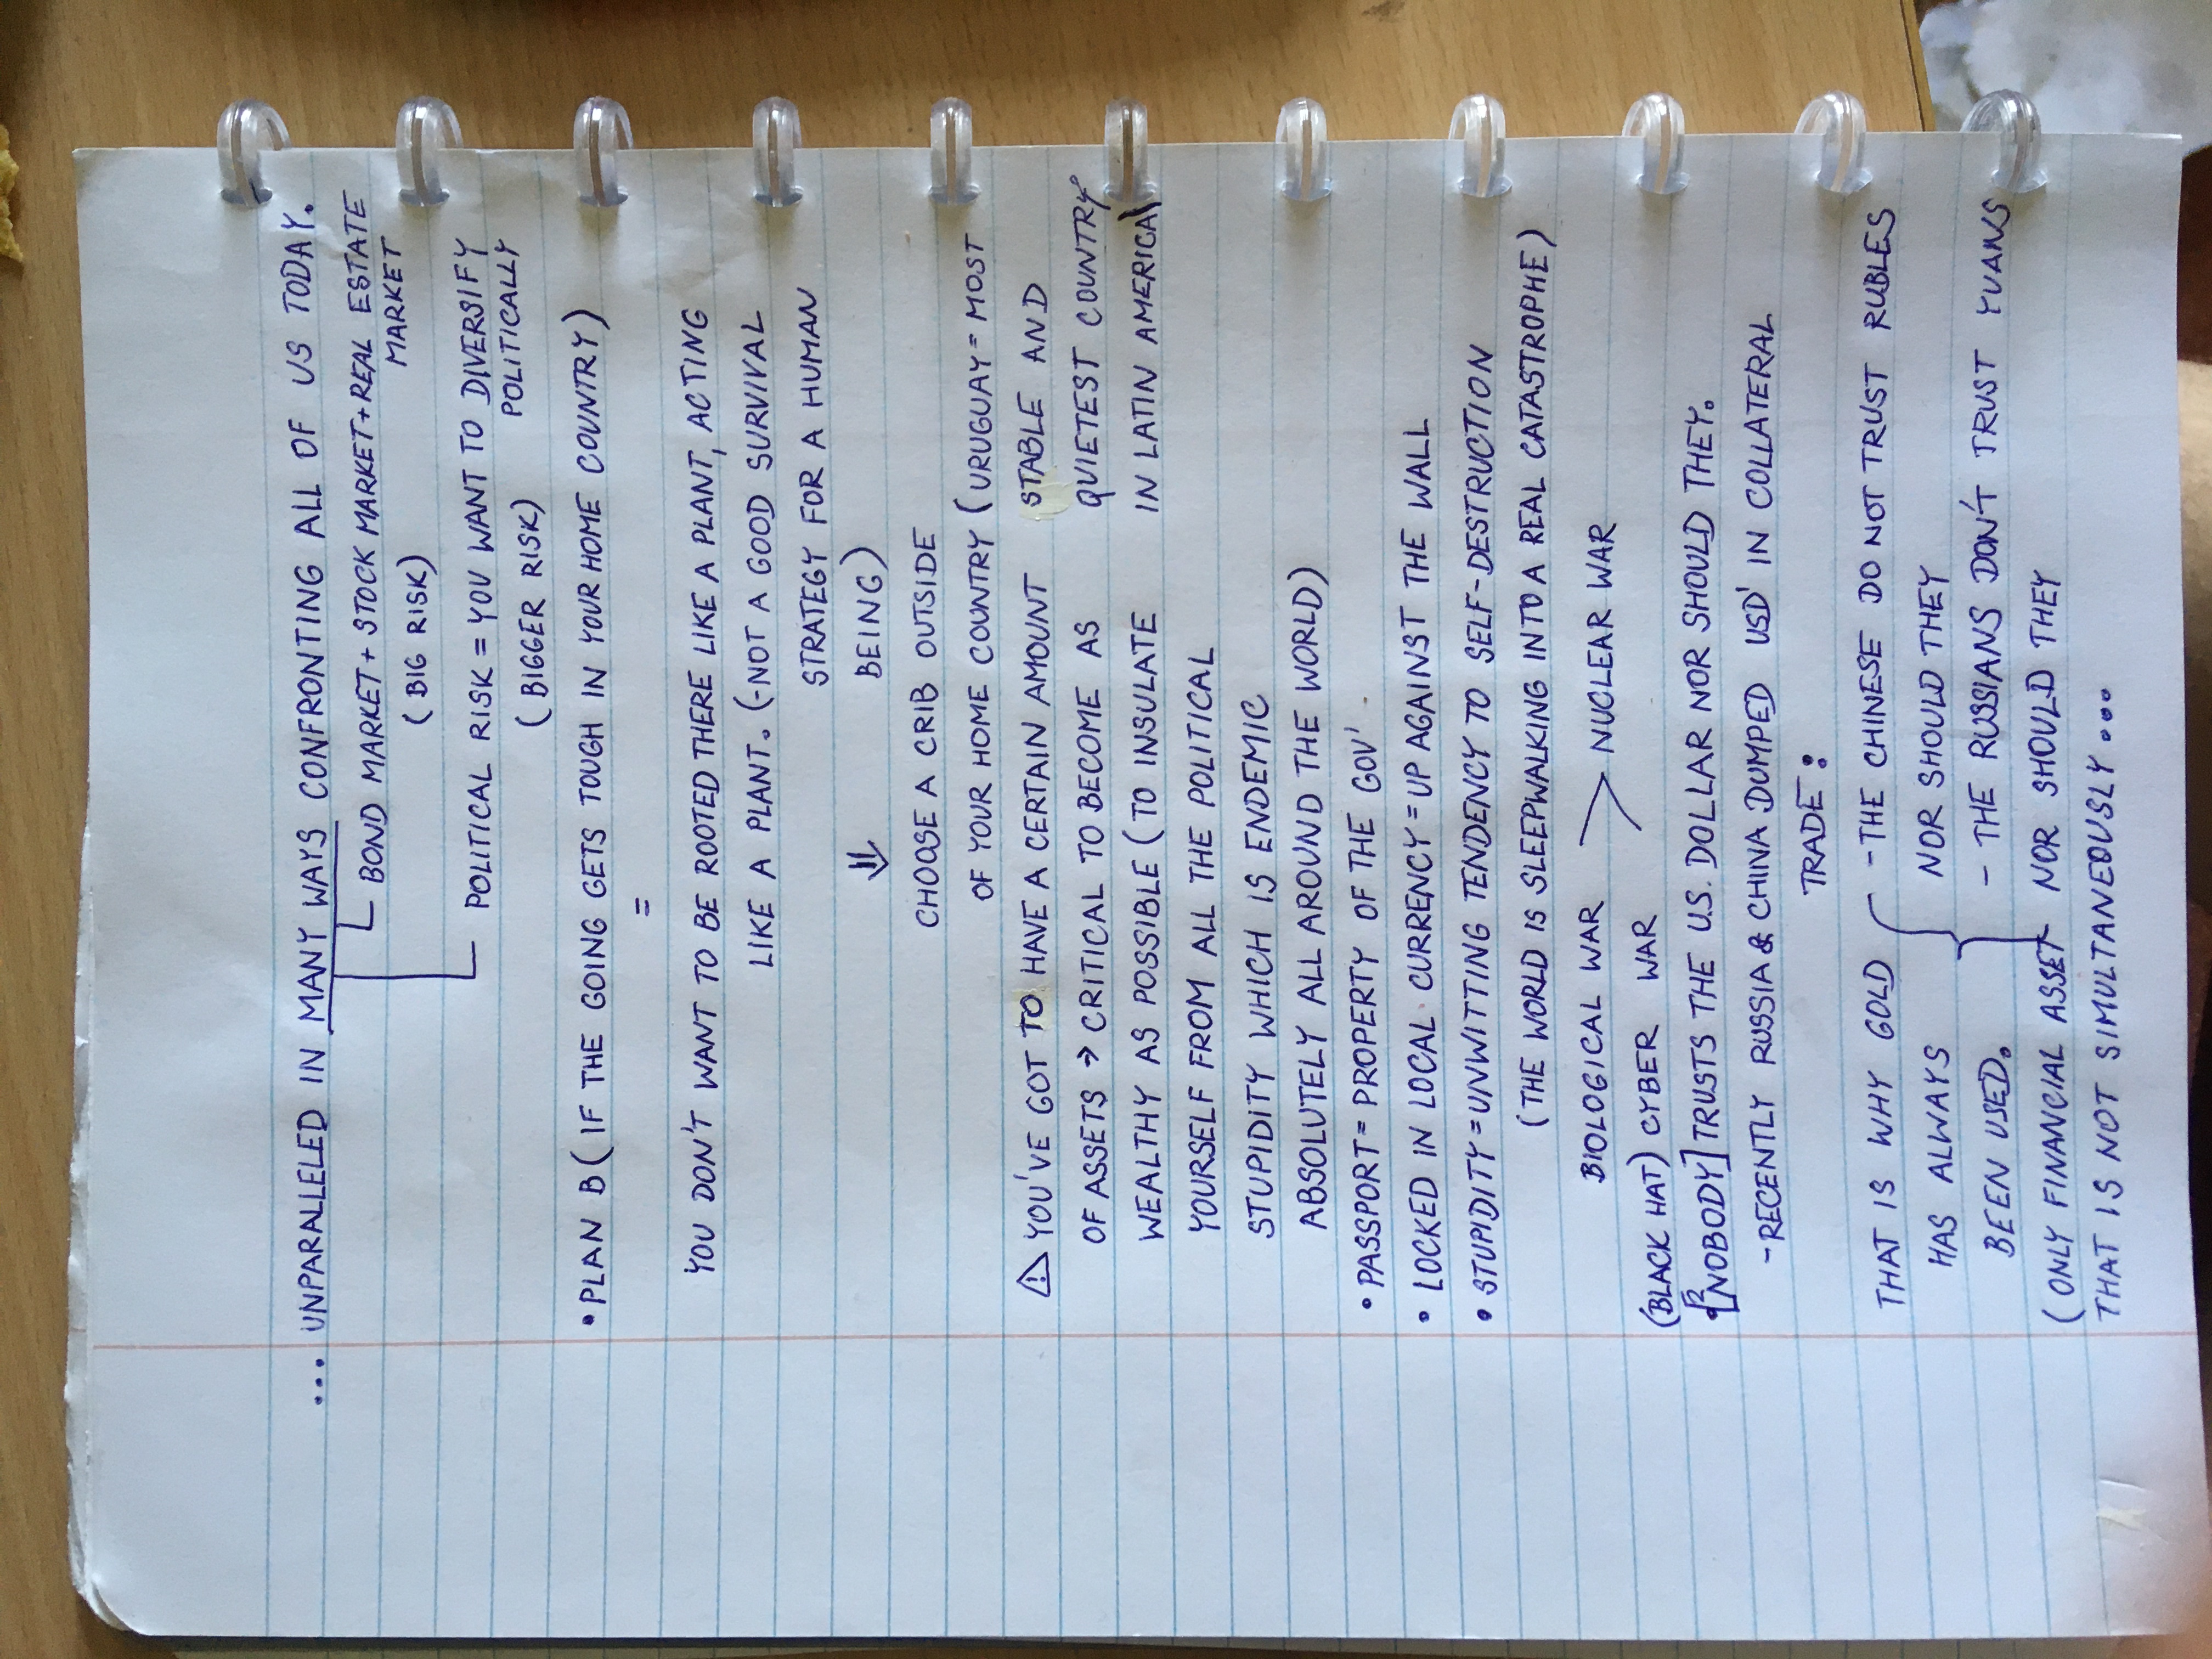 ... UNPARALLELED IN MANY WAYS CONFRONTING ALL OF US TODAY.
BOND MARKET + STOCK MARKET + REAL ESTATE
MARKET
(BIG RISK)
POLITICAL RISK = YOU WANT TO DIVERSIFY
POLITICALLY
(BIGGER RISK)
• PLAN B (IF THE GOING GETS TOUGH IN YOUR HOME COUNTRY)
=
YOU DON'T WANT TO BE ROOTED THERE LIKE A PLANT, ACTING
LIKE A PLANT. (-NOT A GOOD SURVIVAL
STRATEGY FOR A HUMAN
BEING)
⇓
CHOOSE A CRIB OUTSIDE
OF YOUR HOME COUNTRY (URUGUAY = MOST
STABLE AND
QUIETEST COUNTRY
IN LATIN AMERICA)
⚠ YOU'VE GOT TO HAVE A CERTAIN AMOUNT
OF ASSETS → CRITICAL TO BECOME AS
WEALTHY AS POSSIBLE (TO INSULATE
YOURSELF FROM ALL THE POLITICAL
STUPIDITY WHICH IS ENDEMIC
ABSOLUTELY ALL AROUND THE WORLD)
• PASSPORT = PROPERTY OF THE GOV'
• LOCKED IN LOCAL CURRENCY = UP AGAINST THE WALL
• STUPIDITY = UNWITTING TENDENCY TO SELF-DESTRUCTION
(THE WORLD IS SLEEPWALKING INTO A REAL CATASTROPHE)
BIOLOGICAL WAR > NUCLEAR WAR
(BLACK HAT) CYBER WAR
• [NOBODY] TRUSTS THE U.S. DOLLAR NOR SHOULD THEY.
- RECENTLY RUSSIA & CHINA DUMPED USD' IN COLLATERAL
TRADE:
- THE CHINESE DO NOT TRUST RUBLES
NOR SHOULD THEY
- THE RUSSIANS DON'T TRUST YUANS
NOR SHOULD THEY
THAT IS WHY GOLD
HAS ALWAYS
BEEN USED.
(ONLY FINANCIAL ASSET
THAT IS NOT SIMULTANEOUSLY ...